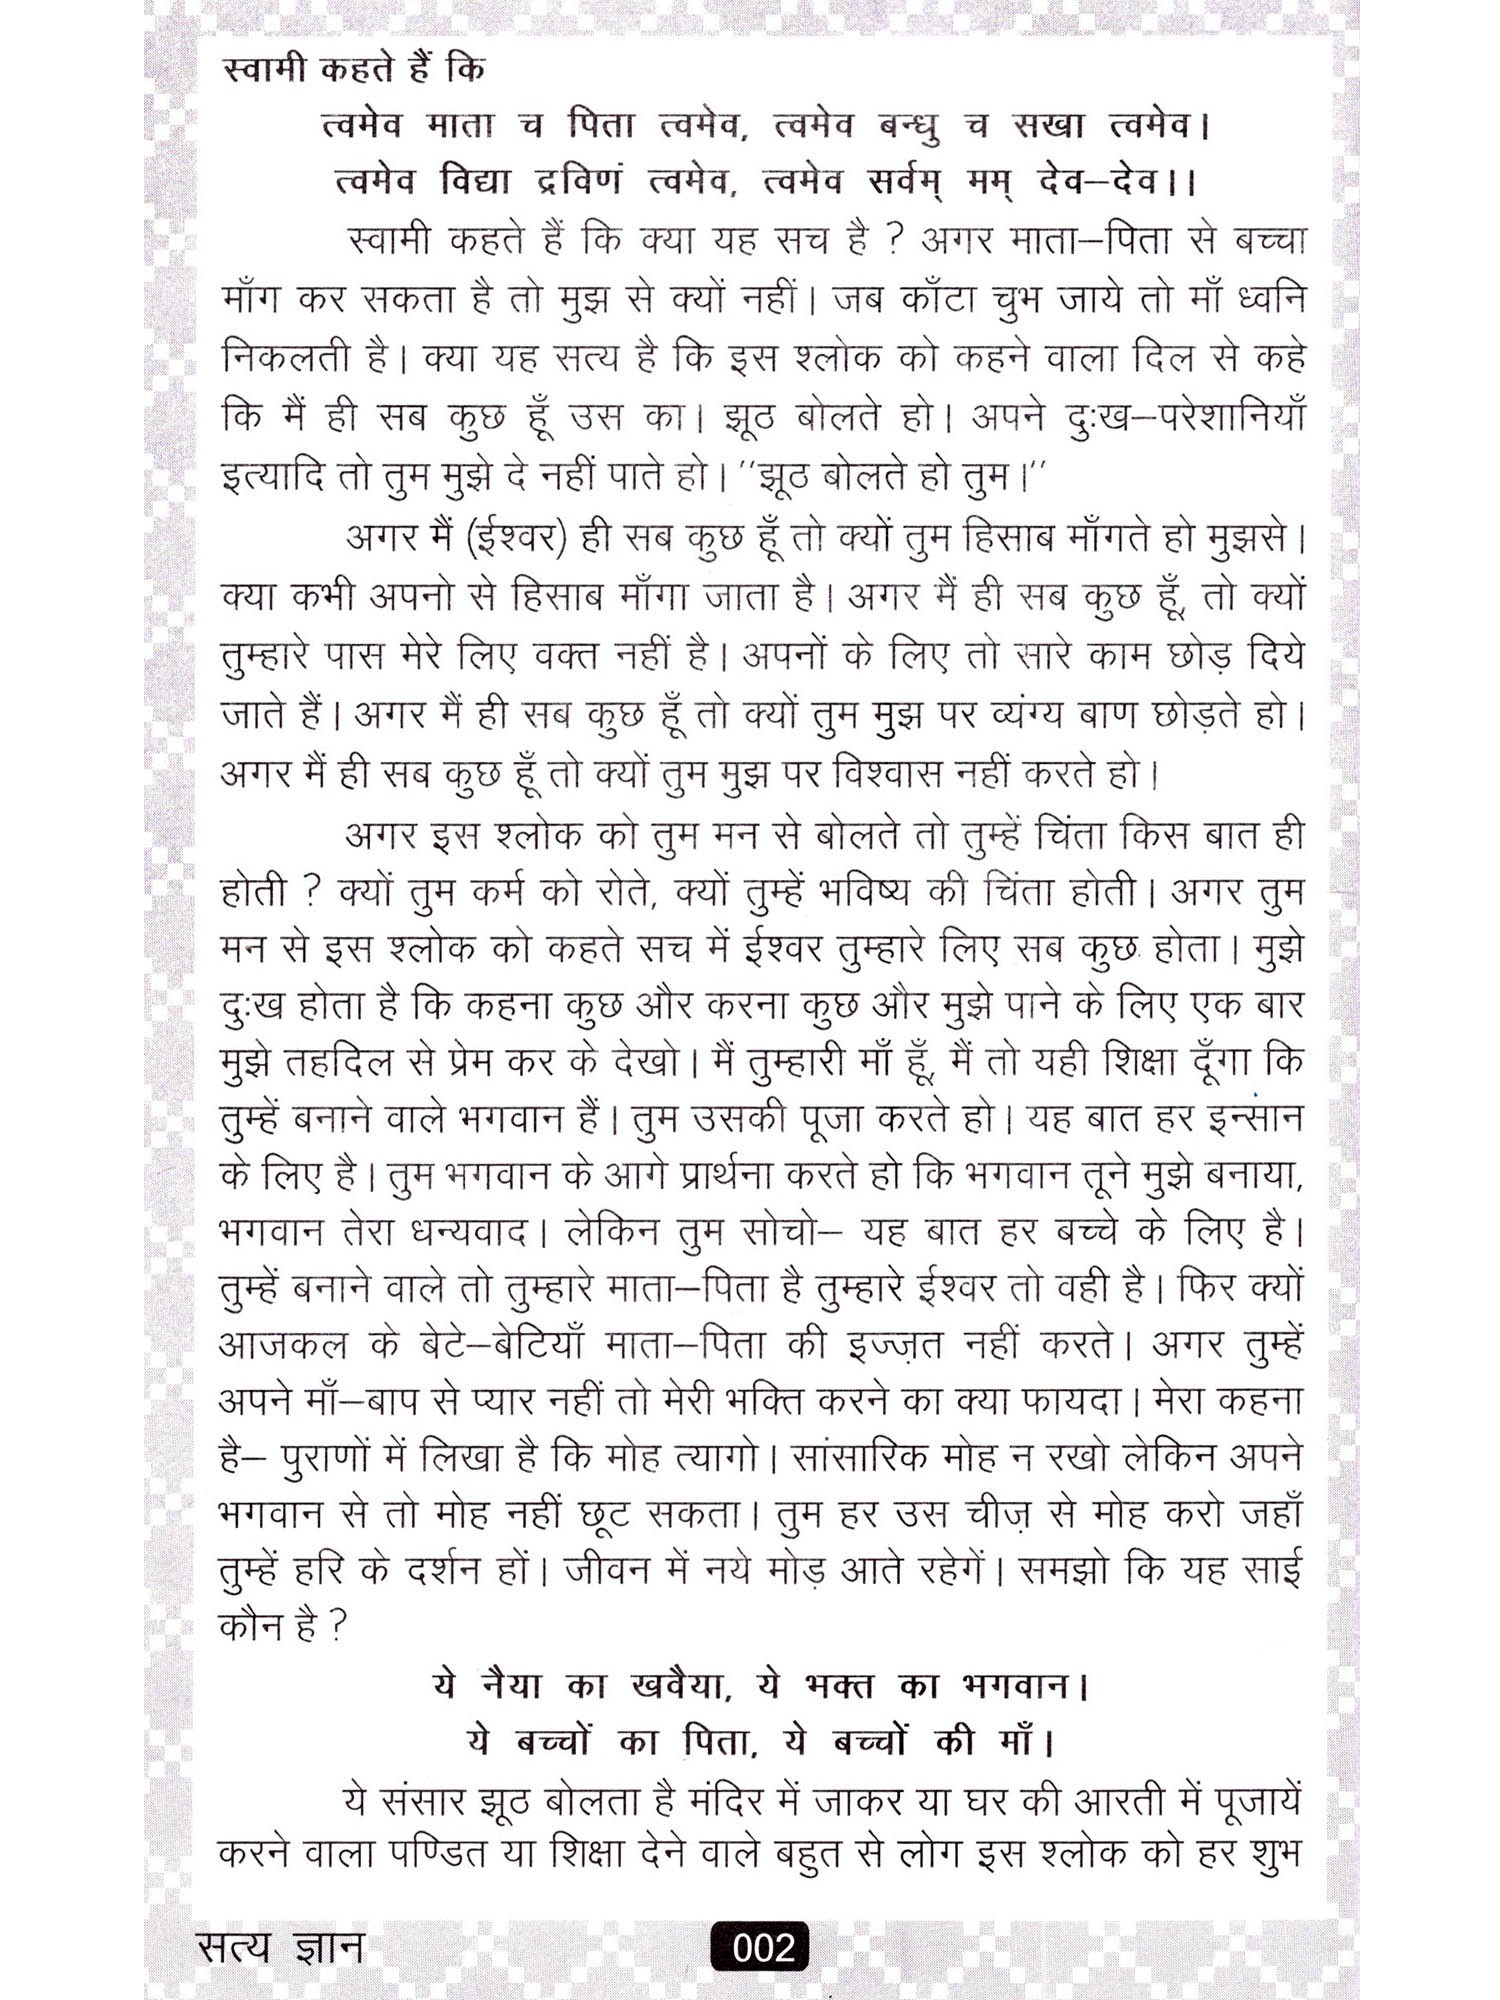 स्वामी कहते हैं कि
त्वमेव माता च पिता त्वमेव, त्वमेव बन्धु च सखा त्वमेव।
त्वमेव विद्या द्रविणं त्वमेव, त्वमेव सर्वम् मम् देव–देव।।
स्वामी कहते हैं कि क्या यह सच है ? अगर माता–पिता से बच्चा
माँग कर सकता है तो मुझ से क्यों नहीं। जब काँटा चुभ जाये तो माँ ध्वनि
निकलती है। क्या यह सत्य है कि इस श्लोक को कहने वाला दिल से कहे
कि मैं ही सब कुछ हूँ उस का। झूठ बोलते हो। अपने दुःख–परेशानियाँ
इत्यादि तो तुम मुझे दे नहीं पाते हो। ''झूठ बोलते हो तुम।''
अगर मैं (ईश्वर) ही सब कुछ हूँ तो क्यों तुम हिसाब माँगते हो मुझसे।
क्या कभी अपनो से हिसाब माँगा जाता है। अगर मैं ही सब कुछ हूँ, तो क्यों
तुम्हारे पास मेरे लिए वक्त नहीं है। अपनों के लिए तो सारे काम छोड़ दिये
जाते हैं। अगर मैं ही सब कुछ हूँ तो क्यों तुम मुझ पर व्यंग्य बाण छोड़ते हो।
अगर मैं ही सब कुछ हूँ तो क्यों तुम मुझ पर विश्वास नहीं करते हो।
अगर इस श्लोक को तुम मन से बोलते तो तुम्हें चिंता किस बात ही
होती ? क्यों तुम कर्म को रोते, क्यों तुम्हें भविष्य की चिंता होती। अगर तुम
मन से इस श्लोक को कहते सच में ईश्वर तुम्हारे लिए सब कुछ होता। मुझे
दुःख होता है कि कहना कुछ और करना कुछ और मुझे पाने के लिए एक बार
मुझे तहदिल से प्रेम कर के देखो। मैं तुम्हारी माँ हूँ, मैं तो यही शिक्षा दूँगा कि
तुम्हें बनाने वाले भगवान हैं। तुम उसकी पूजा करते हो। यह बात हर इन्सान
के लिए है। तुम भगवान के आगे प्रार्थना करते हो कि भगवान तूने मुझे बनाया,
भगवान तेरा धन्यवाद। लेकिन तुम सोचो– यह बात हर बच्चे के लिए है।
तुम्हें बनाने वाले तो तुम्हारे माता–पिता है तुम्हारे ईश्वर तो वही है। फिर क्यों
आजकल के बेटे–बेटियाँ माता–पिता की इज्ज़त नहीं करते। अगर तुम्हें
अपने माँ–बाप से प्यार नहीं तो मेरी भक्ति करने का क्या फायदा। मेरा कहना
है– पुराणों में लिखा है कि मोह त्यागो। सांसारिक मोह न रखो लेकिन अपने
भगवान से तो मोह नहीं छूट सकता। तुम हर उस चीज़ से मोह करो जहाँ
तुम्हें हरि के दर्शन हों। जीवन में नये मोड़ आते रहेगें। समझो कि यह साई
कौन है ?
ये नैया का खवैया, ये भक्त का भगवान।
ये बच्चों का पिता, ये बच्चों की माँ।
ये संसार झूठ बोलता है मंदिर में जाकर या घर की आरती में पूजायें
करने वाला पण्डित या शिक्षा देने वाले बहुत से लोग इस श्लोक को हर शुभ
सत्य ज्ञान
002